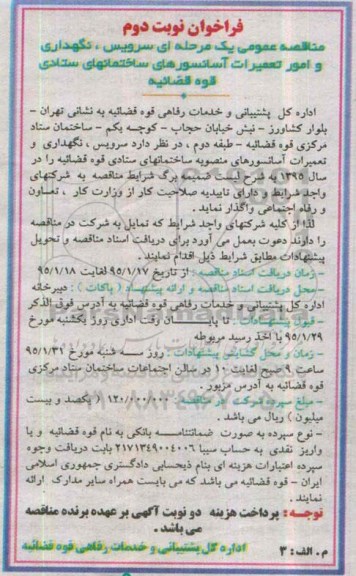 فراخوان نوبت دوم
مناقصه عمومی یک مرحله ای سرویس ، نگهداری
و امور تعمیرات آسانسورهای ساختمانهای ستادی
قوه قضائیه
اداره کل پشتیبانی و خدمات رفاهی قوه قضائیه به نشانی تهران -
بلوار کشاورز - نبش خیابان حجاب - کوچه یکم - ساختمان ستاد
مرکزی قوه قضائیه - طبقه دوم ، در نظر دارد سرویس ، نگهداری و
تعمیرات آسانسورهای منصوبه ساختمانهای ستادی قوه قضائیه را در
سال ۱۳۹۵ به شرح لیست ضمیمه برگ شرایط مناقصه به شرکتهای
واجد شرایط و دارای تاییدیه صلاحیت کار از وزارت کار ، تعاون
و رفاه اجتماعی واگذار نماید .
لذا از کلیه شرکتهای واجد شرایط که تمایل به شرکت در مناقصه
را دارند دعوت بعمل می آورد برای دریافت اسناد مناقصه و تحویل
پیشنهادات مطابق شرایط ذیل اقدام نمایند .
- زمان دریافت اسناد مناقصه : از تاریخ ۹۵/۱/۱۷ لغایت ۹۵/۱/۱۸
- محل دریافت اسناد مناقصه و ارائه پیشنهاد ( پاکات ) : دبیرخانه
اداره کل پشتیبانی و خدمات رفاهی قوه قضائیه به آدرس فوق الذکر
- قبول پیشنهادات : تا پایان وقت اداری روز یکشنبه مورخ
۹۵/۱/۲۹ با اخذ رسید مربوطه
- زمان و محل گشایش پیشنهادات : روز سه شنبه مورخ ۹۵/۱/۳۱
ساعت ۹ صبح لغایت ۱۰ در سالن اجتماعات ساختمان ستاد مرکزی
قوه قضائیه به آدرس مزبور .
- مبلغ سپرده شرکت در مناقصه ۱۲۰/۰۰۰/۰۰۰ ( یکصد و بیست
میلیون ) ریال می باشد .
- نوع سپرده به صورت ضمانتنامه بانکی به نام قوه قضائیه و یا
واریز نقدی به حساب سیبا ۲۱۷۱۳۴۹۰۰۴۰۰۶ بابت دریافت وجوه
سپرده اعتبارات هزینه ای بنام ذیحسابی دادگستری جمهوری اسلامی
ایران - قوه قضائیه می باشد که می بایست همراه سایر مدارک ارائه
نمایند .
توجه : پرداخت هزینه دو نوبت آگهی بر عهده برنده مناقصه
می باشد .
م . الف : ۳ اداره کل پشتیبانی و خدمات رفاهی قوه قضائیه